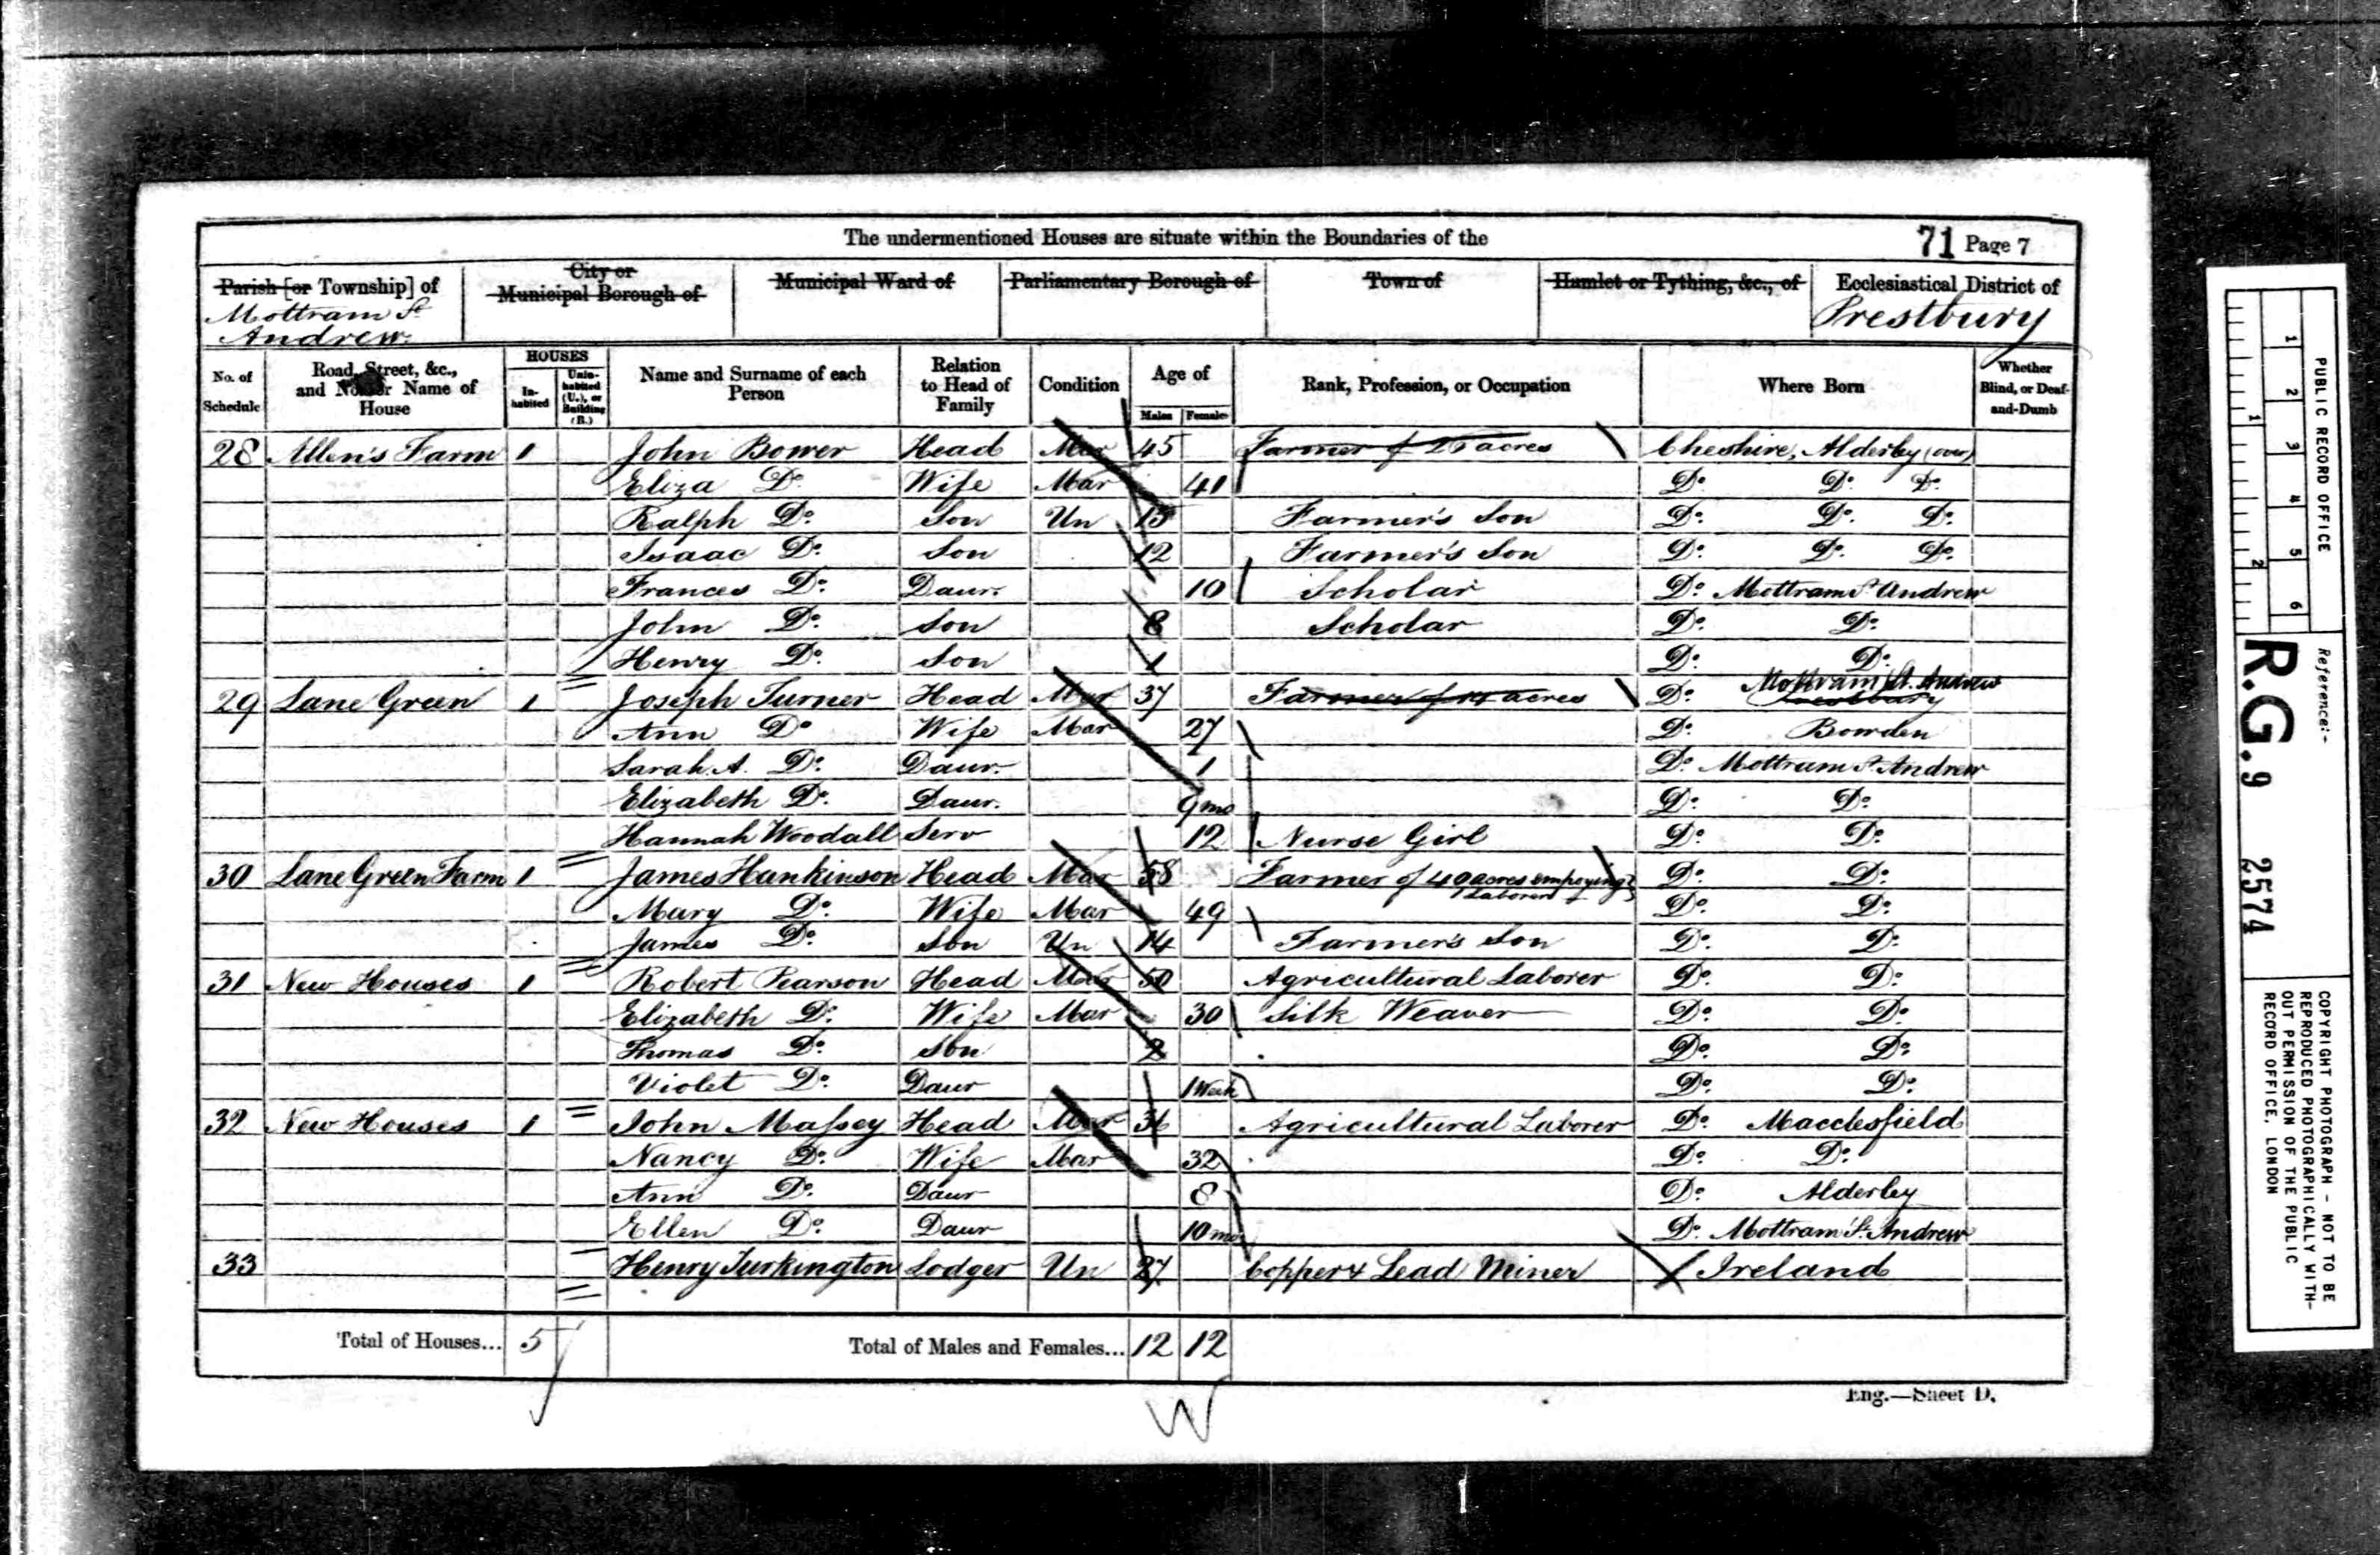 The undermentioned Houses are situate within the Boundaries of the
71 Page 7
Parish [or Township] of
Mottram St
Andrew
City or
Municipal Borough of
Municipal Ward of
Parliamentary Borough of
Town of
Hamlet or Tything, &c., of
Ecclesiastical District of
Prestbury
No. of Schedule
Road, Street, &c., and No. or Name of House
HOUSES
In-habited
Unin-habited (U.), or Building (B.)
Name and Surname of each Person
Relation to Head of Family
Condition
Age of
Males Females
Rank, Profession, or Occupation
Where Born
Whether Blind, or Deaf-and-Dumb
28 Allen's Farm 1 John Bower Head Mar 45 Farmer of acres Cheshire, Alderley (over)
Eliza Do. Wife Mar 41 Do. Do. Do.
Ralph Do. Son Un 15 Farmer's Son Do. Do. Do.
Isaac Do. Son 12 Farmer's Son Do. Do. Do.
Frances Do. Daur. 10 Scholar Do. Mottram St. Andrew
John Do. Son 8 Scholar Do. Do.
Henry Do. Son 1 Do. Do.
29 Lane Green 1 Joseph Turner Head Mar 37 Farmer of 14 acres Do. Mottram St. Andrew
Prestbury
Ann Do Wife Mar 27 Do. Bowden
Sarah A. Do. Daur. 1 Do. Mottram St. Andrew
Elizabeth Do. Daur. 9 mo Do. Do.
Hannah Woodall Serv 12 Nurse Girl Do. Do.
30 Lane Green Farm 1 James Hankinson Head Mar 58 Farmer of 49 acres empoying Do. Do.
1 Laborer
Mary Do. Wife Mar 49 Do. Do.
James Do. Son Un 14 Farmer's Son Do. Do.
31 New Houses 1 Robert Pearson Head Mar 50 Agricultural Laborer Do. Do.
Elizabeth Do. Wife Mar 30 Silk Weaver Do. Do.
Thomas Do. Son 2 Do. Do.
Violet Do. Daur 1 Week Do. Do.
32 New Houses 1 John Massey Head Mar 36 Agricultural Laborer Do. Macclesfield
Nancy Do. Wife Mar 32 Do. Do.
Ann Do. Daur 8 Do. Alderley
Ellen Do. Daur 10 mo. Do. Mottram St. Andrew
33 Henry Turkington Lodger Un 27 Copper & Lead Miner Ireland
Total of Houses... 5 Total of Males and Females... 12 12
Eng.—Sheet D.
PUBLIC RECORD OFFICE
1 2 3 4 5 6
1 2
Reference:-
R.G. 9 2574
COPYRIGHT PHOTOGRAPH - NOT TO BE
REPRODUCED PHOTOGRAPHICALLY WITH-
OUT PERMISSION OF THE PUBLIC
RECORD OFFICE, LONDON